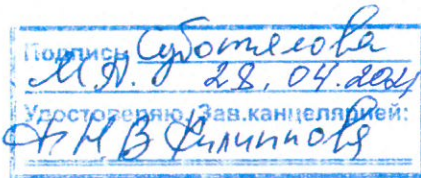 Подпись Суботялова
М.А. 28.04.2021
Удостоверяю/Зав.канцелярией:
Н.В Филиппова